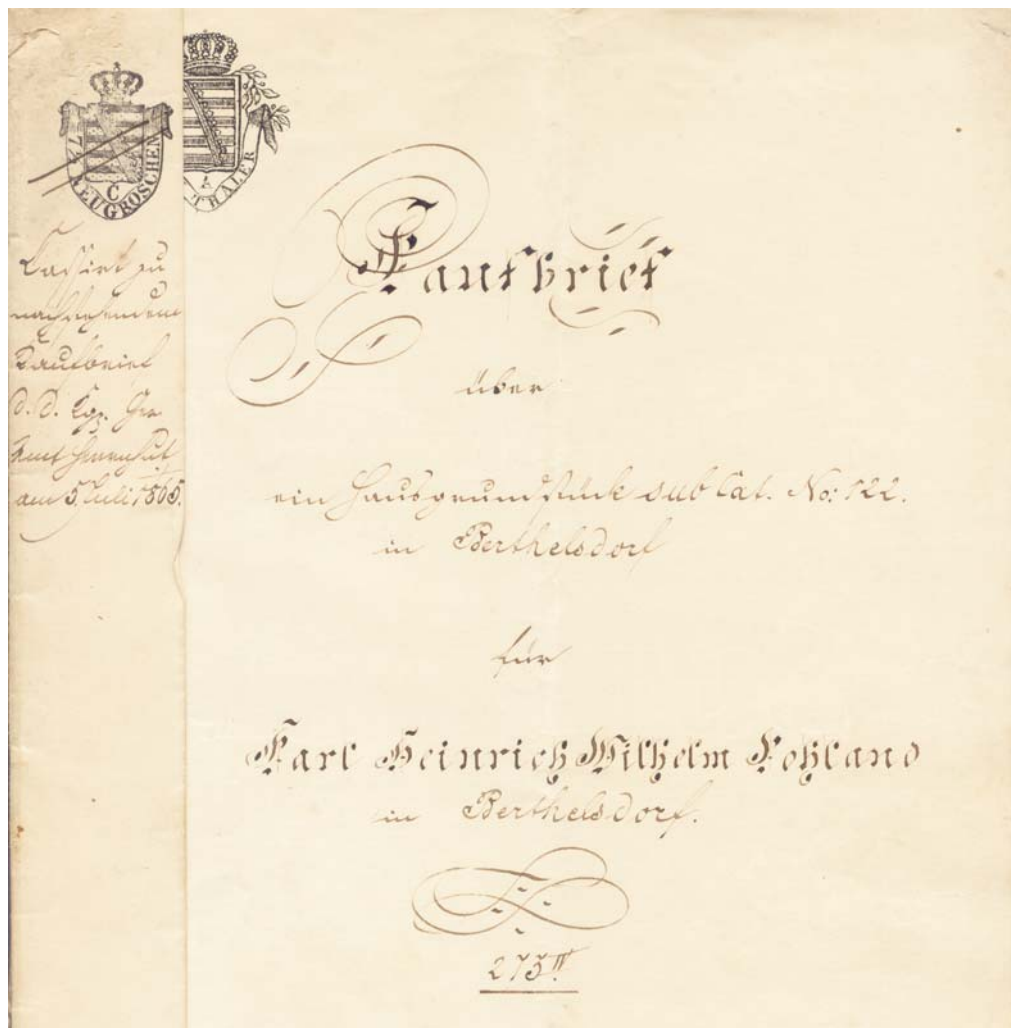 C
NEUGROSCHEN
THALER
Cassirt zu
nachstehendem
Kaufbrief
d. d. Kgs. Ger
Amt Herrnhut
am 5. Juli 1865.
Kaufbrief
über
ein Hausgrundstück sub Cat. No: 122.
in Berthelsdorf
für
Karl Heinrich Wilhelm Pohland
in Berthelsdorf.